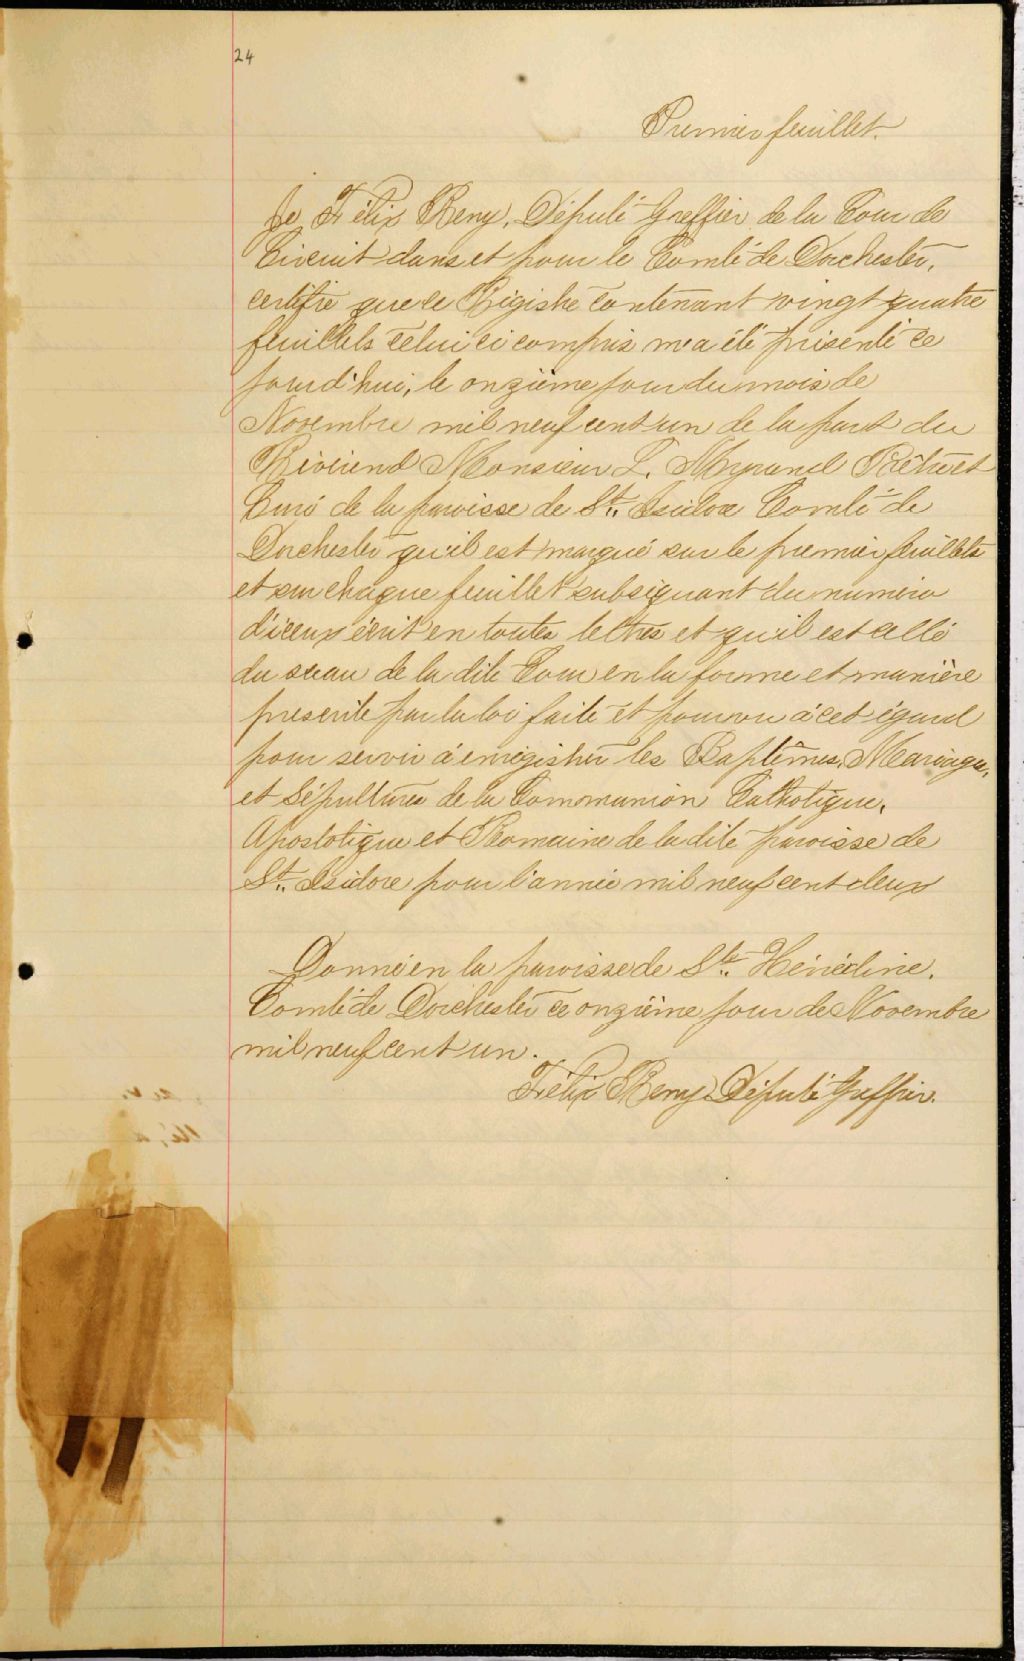 24
Premier feuillet.
Je Félix Remy, Député Greffier de la Cour de
Circuit dans et pour le Comté de Dorchester,
certifie que ce Régistre contenant vingt quatre
feuillets celui ci compris m'a été présenté ce
jourd'hui, le onzième jour du mois de
Novembre mil neuf cent un de la part du
Révérend Monsieur L. Myrand Prêtre et
Curé de la paroisse de St. Isidore Comté de
Dorchester qu'il est marqué sur le premier feuillets
et sur chaque feuillet subséquant du numéro
d'iceux écrit en toutes lettres et qu'il est cellé
du sceau de la dite Cour en la forme et manière
prescrite par la loi faite et pourvu à cet égard
pour servir à enrégistrer les Baptêmes, Mariages,
et Sépultures de la Communion Catholique,
Apostolique et Romaine de la dite paroisse de
St. Isidore pour l'année mil neuf cent deux
Donné en la paroisse de Ste. Hénédine,
Comté de Dorchester ce onzième jour de Novembre
mil neuf cent un.
Félix Remy Député Greffier.